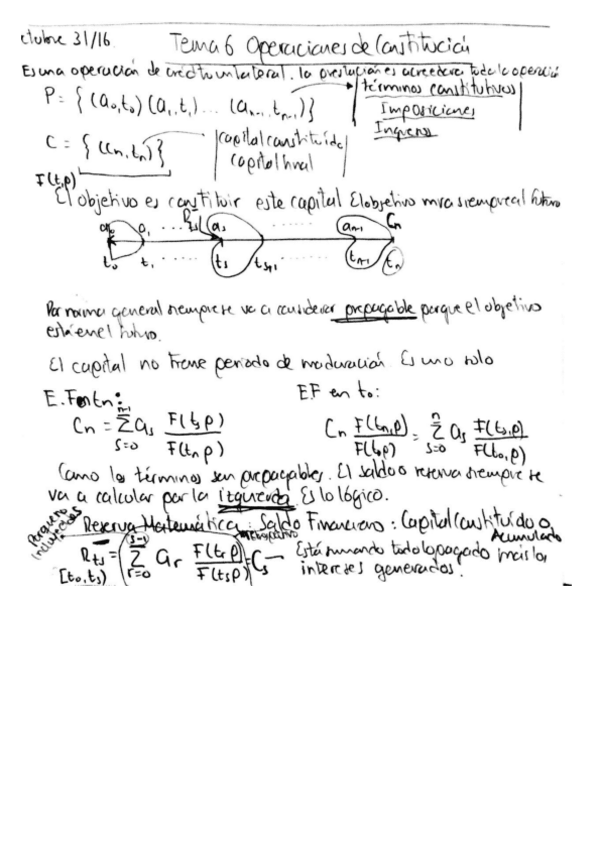 ctubre 31/16 Tema 6 Operaciones de Constitución
Es una operación de crédito unilateral. la prestación es acreedora toda la operació
P = { (a₀,t₀) (a₁,t₁) ... (aₙ₋₁,tₙ₋₁) } términos constitutivos
Imposiciones
Ingreso
C = { (Cn, tn) } capital constituido
capital final
F(t,p)
El objetivo es constituir este capital El objetivo mira siempre al futuro
a₀ a₁ ... as ...... aₙ₋₁ Cn
t₀ t₁ ..... ts ts+1 ...... tn-1 tn
Por norma general siempre se va a considerar prepagable porque el objetivo
está en el futuro.
El capital no tiene periodo de maduración. Es uno solo
E.F en tn: EF en t₀:
Cn = Σ(s=0, n-1) as F(ts p) / F(tn p) Cn F(tn,p) / F(t₀p) = Σ(s=0, n) as F(ts,p) / F(t₀,p)
Como los términos son prepagables. El saldo o reserva siempre se
va a calcular por la izquierda Es lo lógico.
Reserva Matemática: Saldo Financiero: Capital Constituido o
Acumulado
Rts = Σ(r=0, s-1) ar F(tr p) / F(ts p) = Cs → Está sumando todo lo pagado más los
[t₀, ts) intereses generados.